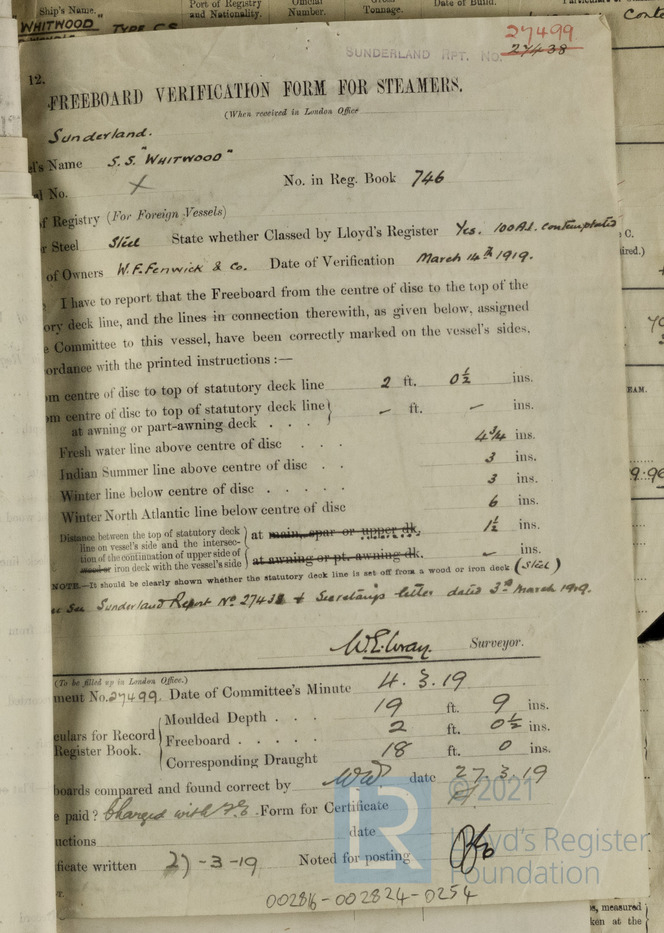 Ship's Name.
Port of Registry and Nationality.
Official Number.
Gross Tonnage.
Date of Build.
"WHITWOOD" TYPE C.S
Conte
27499
SUNDERLAND RPT. NO. 27438
12.
FREEBOARD VERIFICATION FORM FOR STEAMERS.
(When received in London Office
Sunderland.
el's Name S.S. "WHITWOOD"
al No. X No. in Reg. Book 746
of Registry (For Foreign Vessels)
r Steel Steel State whether Classed by Lloyd's Register Yes. 100A1. contemplated
of Owners W.F. Fenwick & Co. Date of Verification March 14th 1919.
I have to report that the Freeboard from the centre of disc to the top of the
ory deck line, and the lines in connection therewith, as given below, assigned
e Committee to this vessel, have been correctly marked on the vessel's sides,
ordance with the printed instructions :—
om centre of disc to top of statutory deck line 2 ft. 0½ ins.
om centre of disc to top of statutory deck line
at awning or part-awning deck . . . – ft. – ins.
Fresh water line above centre of disc . . . 4¾ ins.
Indian Summer line above centre of disc . . 3 ins.
Winter line below centre of disc . . . . . 3 ins.
Winter North Atlantic line below centre of disc 6 ins.
Distance between the top of statutory deck
line on vessel's side and the intersec-
tion of the continuation of upper side of
wood or iron deck with the vessel's side
at main, spar or upper dk, 1½ ins.
at awning or pt. awning dk. – ins.
NOTE.—It should be clearly shown whether the statutory deck line is set off from a wood or iron deck (Steel)
See Sunderland Report No 27438 & Secretarys letter dated 3rd March 1919.
W.E. Wray. Surveyor.
(To be filled up in London Office.)
ment No. 27499. Date of Committee's Minute 4.3.19
culars for Record
Register Book.
Moulded Depth . . . 19 ft. 9 ins.
Freeboard . . . . . 2 ft. 0½ ins.
Corresponding Draught 18 ft. 0 ins.
boards compared and found correct by WW date 27.3.19
e paid? Charged with F.E. Form for Certificate
uctions date
ficate written 27-3-19 Noted for posting
002816-002824-0254
© 2021
LR
Lloyd's Register
Foundation
s, measured
ken at the